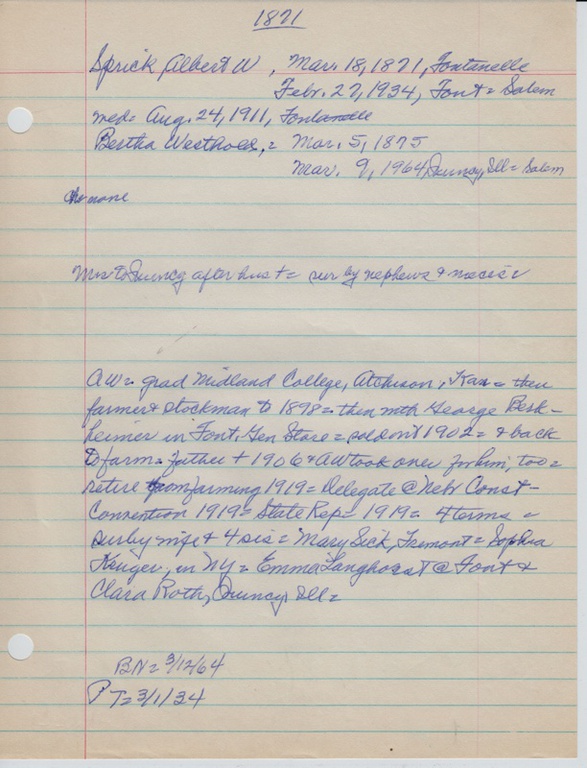 1871
Sprick Albert W, Mar. 18, 1871, Fontanelle
Febr. 27, 1934, Font = Salem
med= Aug. 24, 1911, Fontanelle
Bertha Westhold, = Mar. 5, 1875
Mar. 9, 1964 Quincy, Ill = Salem
Ch= none
Mrs to Quincy after hus + = sur by nephews & nieces =
AW= grad Midland College, Atchison, Kan = then
farmer & stockman to 1898 = then with George
heimer in Font. Gen Store = sold out 1902 = & back
to farm = father + 1906 & AW took over for him, too =
retire from farming 1919 = Delegate @ Nebr Const-
Convention 1919 = State Rep = 1919 = 4 terms =
sur by wife & 4 sis = Mary Sick, Fremont = Sophia
Kruger, in NY = Emma Langhorst @ Font &
Clara Roth, Quincy, Ill =
BN = 3/12/64
PT = 3/1/34